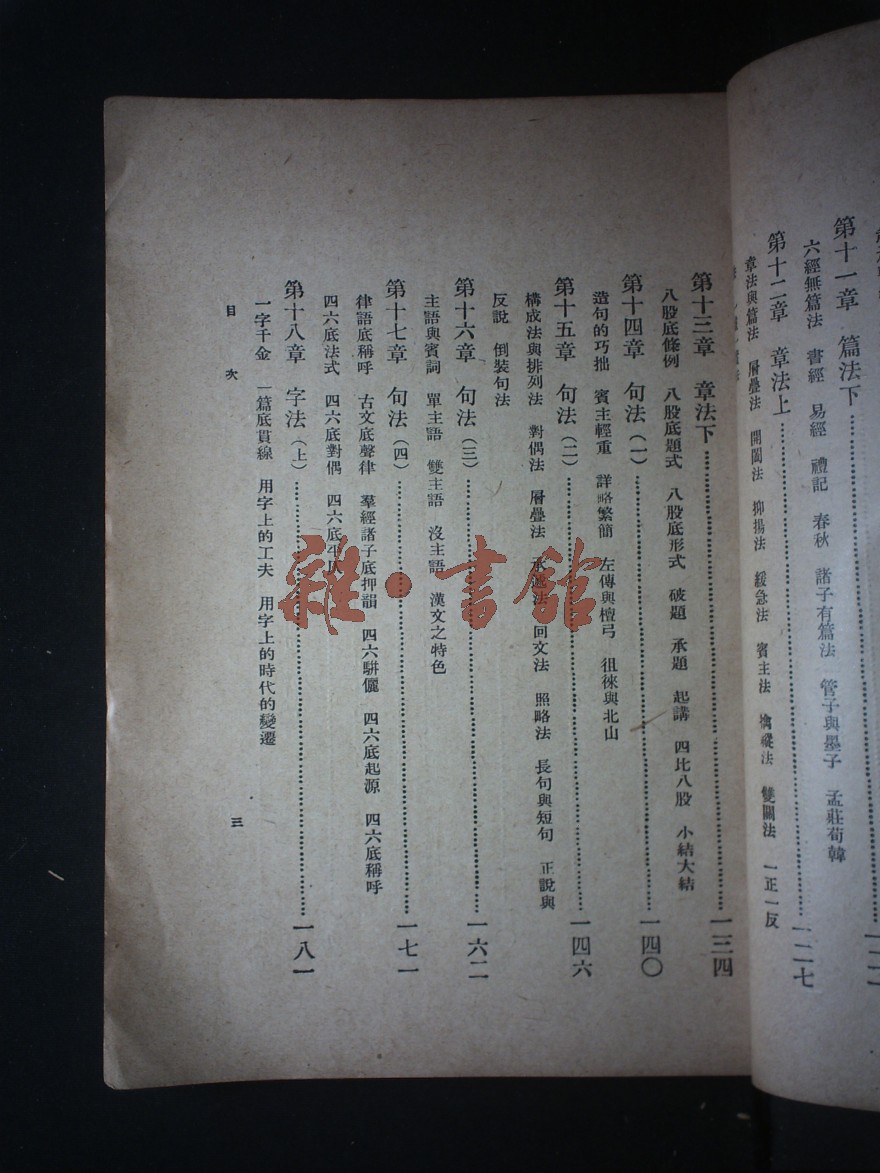 第十一章　篇法下
六經無篇法　書經　易經　禮記　春秋　諸子有篇法　管子與墨子　孟莊荀韓
第十二章　章法上……一二七
章法與篇法　層疊法　開闔法　抑揚法　緩急法　賓主法　擒縱法　雙關法　一正一反
第十三章　章法下……一三四
八股底條例　八股底題式　八股底形式　破題　承題　起講　四比八股　小結大結
第十四章　句法(一)……一四〇
造句的巧拙　賓主輕重　詳略繁簡　左傳與檀弓　徂徠與北山
第十五章　句法(二)……一四六
構成法與排列法　對偶法　層疊法　承遞法　回文法　照略法　長句與短句　正說與
反說　倒裝句法
第十六章　句法(三)……一六二
主語與賓詞　單主語　雙主語　沒主語　漢文之特色
第十七章　句法(四)……一七一
律語底稱呼　古文底聲律　羣經諸子底押韻　四六駢儷　四六底起源　四六底稱呼
四六底法式　四六底對偶　四六底平仄
第十八章　字法(上)……一八一
一字千金　一篇底貫線　用字上的工夫　用字上的時代的變遷
目次
三
雜·書館